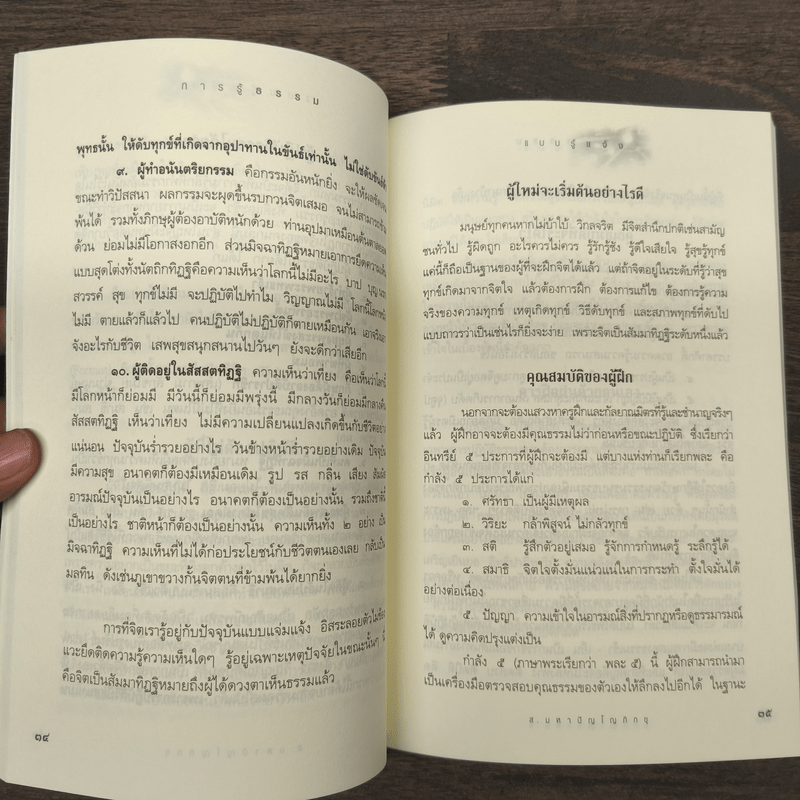 การรู้ธรรม
พุทธนั้น ให้ดับทุกข์ที่เกิดจากอุปาทานในขันธ์เท่านั้น ไม่ใช่ดับขันธ์
๙. ผู้ทำอนันตริยกรรม คือกรรมอันหนักยิ่ง จะให้ผล
ขณะทำวิปัสสนา ผลกรรมจะผุดขึ้นรบกวนจิตเสมอ จนไม่สามารถข้าม
พ้นได้ รวมทั้งภิกษุผู้ต้องอาบัติหนักด้วย ท่านอุปมาเหมือนต้นตาลยอด
ด้วน ย่อมไม่มีโอกาสงอกอีก ส่วนมิจฉาทิฏฐิหมายเอาการยึดความเห็น
แบบสุดโต่งทั้งนัตถิกทิฏฐิคือความเห็นว่าโลกนี้ไม่มีอะไร บาป บุญ นรก
สวรรค์ สุข ทุกข์ไม่มี จะปฏิบัติไปทำไม วิญญาณไม่มี โลกนี้โลกหน้า
ไม่มี ตายแล้วก็แล้วไป คนปฏิบัติไม่ปฏิบัติก็ตายเหมือนกัน เอาจริงเอา
จังอะไรกับชีวิต เสพสุขสนุกสนานไปวันๆ ยังจะดีกว่าเสียอีก
๑๐. ผู้ติดอยู่ในสัสสตทิฏฐิ ความเห็นว่าเที่ยง คือเห็นว่าโลกนี้
มีโลกหน้าก็ย่อมมี มีวันนี้ก็ย่อมมีพรุ่งนี้ มีกลางวันก็ย่อมมีกลางคืน
สัสสตทิฏฐิ เห็นว่าเที่ยง ไม่มีความเปลี่ยนแปลงเกิดขึ้นกับชีวิตอย่าง
แน่นอน ปัจจุบันร่ำรวยอย่างไร วันข้างหน้าร่ำรวยอย่างเดิม ปัจจุบัน
มีความสุข อนาคตก็ต้องมีเหมือนเดิม รูป รส กลิ่น เสียง สัมผัส
อารมณ์ปัจจุบันเป็นอย่างไร อนาคตก็ต้องเป็นอย่างนั้น รวมถึงชาตินี้
เป็นอย่างไร ชาติหน้าก็ต้องเป็นอย่างนั้น ความเห็นทั้ง ๒ อย่าง เป็น
มิจฉาทิฏฐิ ความเห็นที่ไม่ได้ก่อประโยชน์กับชีวิตตนเองเลย กลับเป็น
มลทิน ดังเช่นภูเขาขวางกั้นจิตตนที่ข้ามพ้นได้ยากยิ่ง
การที่จิตเรารู้อยู่กับปัจจุบันแบบแจ่มแจ้ง อิสระลอยตัวไม่ข้อง
แวะยึดติดความรู้ความเห็นใดๆ รู้อยู่เฉพาะเหตุปัจจัยในขณะนั้นๆ นี้
คือจิตเป็นสัมมาทิฏฐิหมายถึงผู้ได้ดวงตาเห็นธรรมแล้ว
๑๔
แบบรู้แจ้ง
ผู้ใหม่จะเริ่มต้นอย่างไรดี
มนุษย์ทุกคนหากไม่บ้าใบ้ วิกลจริต มีจิตสำนึกปกติเช่นสามัญ
ชนทั่วไป รู้ผิดถูก อะไรควรไม่ควร รู้รักรู้ชัง รู้ดีใจเสียใจ รู้สุขรู้ทุกข์
แค่นี้ก็ถือเป็นฐานของผู้ที่จะฝึกจิตได้แล้ว แต่ถ้าจิตอยู่ในระดับที่รู้ว่าสุข
ทุกข์เกิดมาจากจิตใจ แล้วต้องการฝึก ต้องการแก้ไข ต้องการรู้ความ
จริงของความทุกข์ เหตุเกิดทุกข์ วิธีดับทุกข์ และสภาพทุกข์ที่ดับไป
แบบถาวรว่าเป็นเช่นไรก็ยิ่งจะง่าย เพราะจิตเป็นสัมมาทิฏฐิระดับหนึ่งแล้ว
คุณสมบัติของผู้ฝึก
นอกจากจะต้องแสวงหาครูฝึกและกัลยาณมิตรที่รู้และชำนาญจริงๆ
แล้ว ผู้ฝึกอาจจะต้องมีคุณธรรมไม่ว่าก่อนหรือขณะปฏิบัติ ซึ่งเรียกว่า
อินทรีย์ ๕ ประการที่ผู้ฝึกจะต้องมี แต่บางแห่งท่านก็เรียกพละ คือ
กำลัง ๕ ประการได้แก่
๑. ศรัทธา เป็นผู้มีเหตุผล
๒. วิริยะ กล้าพิสูจน์ ไม่กลัวทุกข์
๓. สติ รู้สึกตัวอยู่เสมอ รู้จักการกำหนดรู้ ระลึกรู้ได้
๔. สมาธิ จิตใจตั้งมั่นแน่วแน่ในการกระทำ ตั้งใจมั่นได้
อย่างต่อเนื่อง
๕. ปัญญา ความเข้าใจในอารมณ์สิ่งที่ปรากฏหรือดูธรรมารมณ์
ได้ ดูความคิดปรุงแต่งเป็น
กำลัง ๕ (ภาษาพระเรียกว่า พละ ๕) นี้ ผู้ฝึกสามารถนำมา
เป็นเครื่องมือตรวจสอบคุณธรรมของตัวเองให้ลึกลงไปอีกได้ ในฐานะ
ส.มหาปัญโญภิกขุ
๑๕